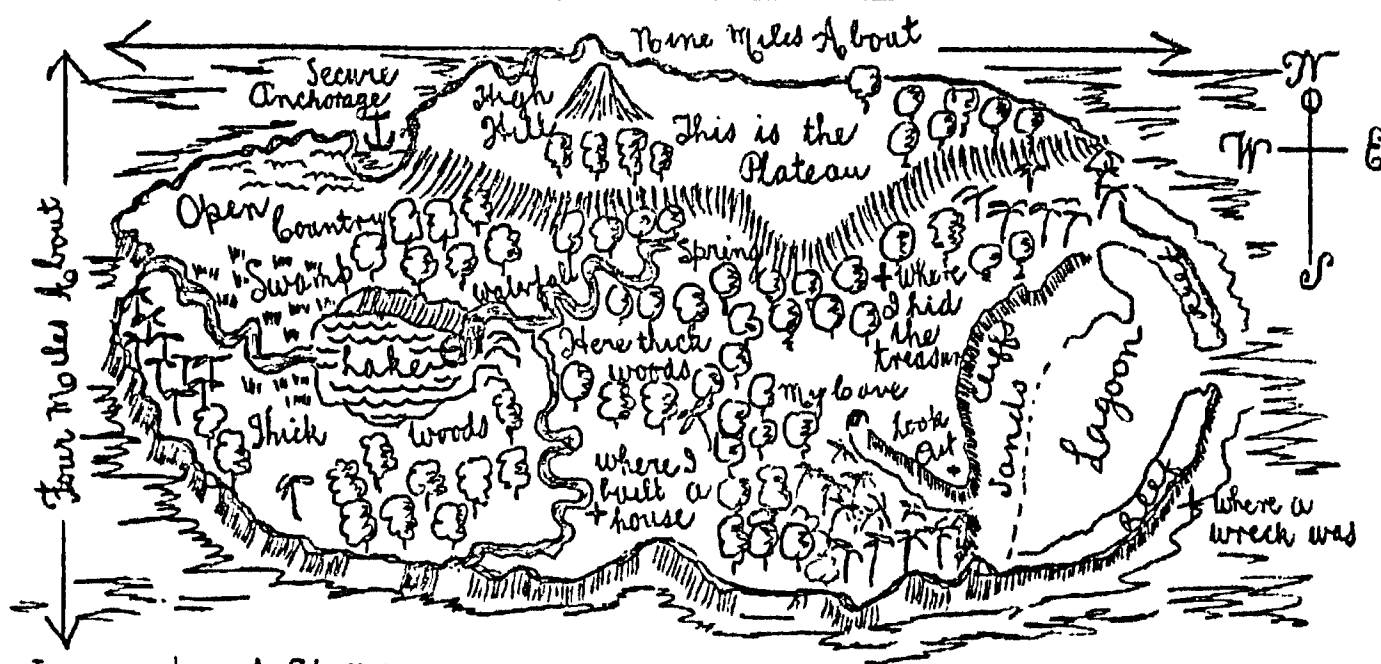 Nine Miles About
N
W
E
S
Four Miles About
Secure
Anchorage
High
Hill
This is the
Plateau
Open Country
Swamp
Waterfall
Spring
+ Where
I hid
the
treasure
Lake
Here thick
woods
Cliff
Sands
Lagoon
Reef
My Cave
Look
Out
+
Thick woods
where I
built a
+ house
Reef
+ where a
wreck was